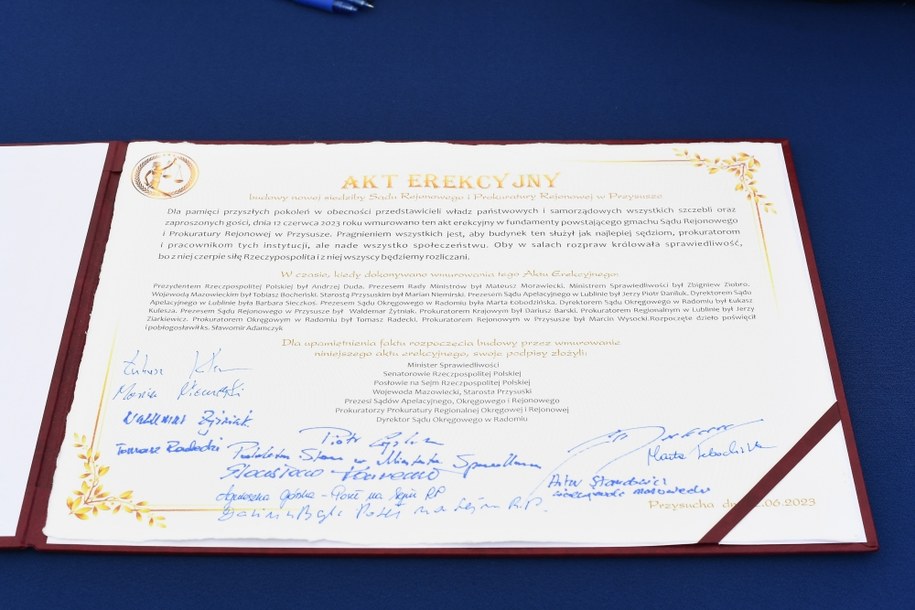 AKT EREKCYJNY
budowy nowej siedziby Sądu Rejonowego i Prokuratury Rejonowej w Przysusze
Dla pamięci przyszłych pokoleń w obecności przedstawicieli władz państwowych i samorządowych wszystkich szczebli oraz
zaproszonych gości, dnia 12 czerwca 2023 roku wmurowano ten akt erekcyjny w fundamenty powstającego gmachu Sądu Rejonowego
i Prokuratury Rejonowej w Przysusze. Pragnieniem wszystkich jest, aby budynek ten służył jak najlepiej sędziom, prokuratorom
i pracownikom tych instytucji, ale nade wszystko społeczeństwu. Oby w salach rozpraw królowała sprawiedliwość,
bo z niej czerpie siłę Rzeczypospolita i z niej wszyscy będziemy rozliczani.
W czasie, kiedy dokonywano wmurowania tego Aktu Erekcyjnego:
Prezydentem Rzeczpospolitej Polskiej był Andrzej Duda. Prezesem Rady Ministrów był Mateusz Morawiecki, Ministrem Sprawiedliwości był Zbigniew Ziobro.
Wojewodą Mazowieckim był Tobiasz Bocheński. Starostą Przysuskim był Marian Niemirski. Prezesem Sądu Apelacyjnego w Lublinie był Jerzy Piotr Daniluk, Dyrektorem Sądu
Apelacyjnego w Lublinie była Barbara Sieczkoś. Prezesem Sądu Okręgowego w Radomiu była Marta Łobodzińska, Dyrektorem Sądu Okręgowego w Radomiu był Łukasz
Kulesza. Prezesem Sądu Rejonowego w Przysusze był Waldemar Żytniak. Prokuratorem Krajowym był Dariusz Barski. Prokuratorem Regionalnym w Lublinie był Jerzy
Ziarkiewicz. Prokuratorem Okręgowym w Radomiu był Tomasz Radecki. Prokuratorem Rejonowym w Przysusze był Marcin Wysocki.Rozpoczęte dzieło poświęcił
i pobłogosławił ks. Sławomir Adamczyk
Dla upamiętnienia faktu rozpoczęcia budowy przez wmurowanie
niniejszego aktu erekcyjnego, swoje podpisy złożyli:
Minister Sprawiedliwości
Senatorowie Rzeczpospolitej Polskiej
Posłowie na Sejm Rzeczpospolitej Polskiej
Wojewoda Mazowiecki, Starosta Przysuski
Prezesi Sądów Apelacyjnego, Okręgowego i Rejonowego
Prokuratorzy Prokuratury Regionalnej Okręgowej i Rejonowej
Dyrektor Sądu Okręgowego w Radomiu
Łukasz
Marian Niemirski
Waldemar Żytniak
Tomasz Radecki
Piotr
Stanisław
Agnieszka Górska - Poseł na Sejm RP
Poseł na Sejm R.P.
Marta Łobodzińska
Artur Standowicz
Przysucha dn. 2.06.2023